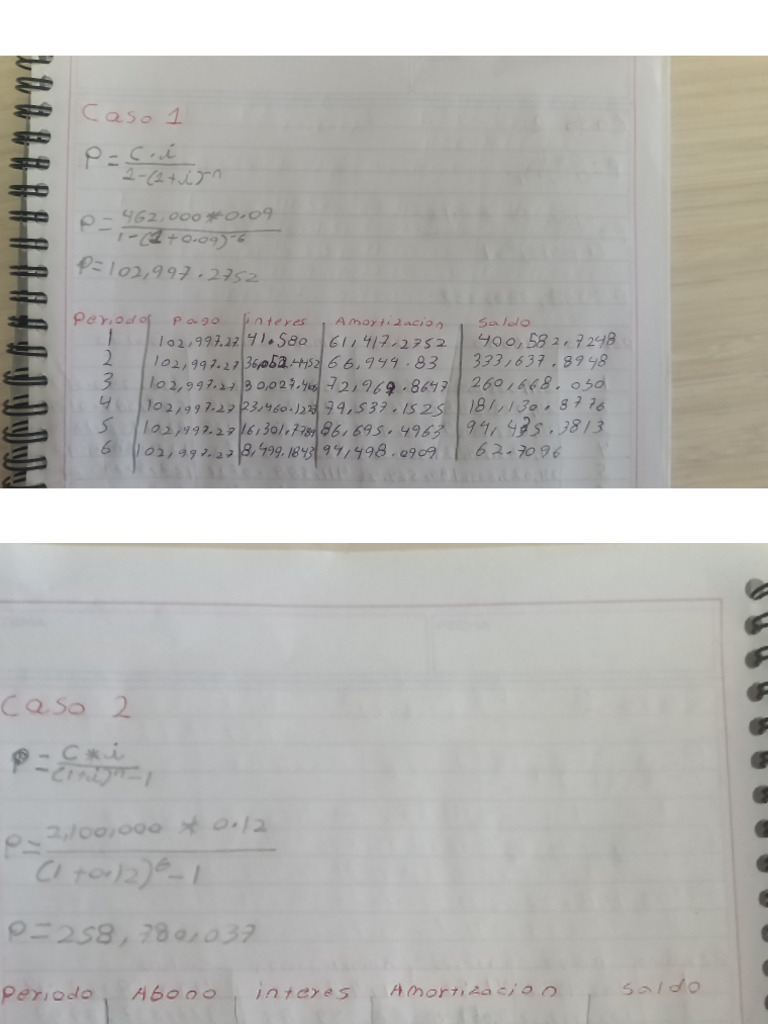 Caso 1
P = C·i
1-(1+i)-n
P = 462,000*0.09
1-(1+0.09)-6
P=102,997.2752
Periodo Pago interes Amortizacion Saldo
1 102,997.27 41.580 61,417.2752 400,582.7248
2 102,997.27 36,052.4452 66,944.83 333,637.8948
3 102,997.27 30,027.410 72,969.8647 260,668.030
4 102,997.27 23,460.1227 79,537.1525 181,130.8776
5 102,997.27 16,301.7789 86,695.4963 94,435.3813
6 102,997.27 8,499.1843 94,498.0909 62.7096
Caso 2
P = C*i
(1+i)n-1
P = 2,100,000 * 0.12
(1+0.12)6-1
P=258,780,037
Periodo Abono interes Amortizacion Saldo